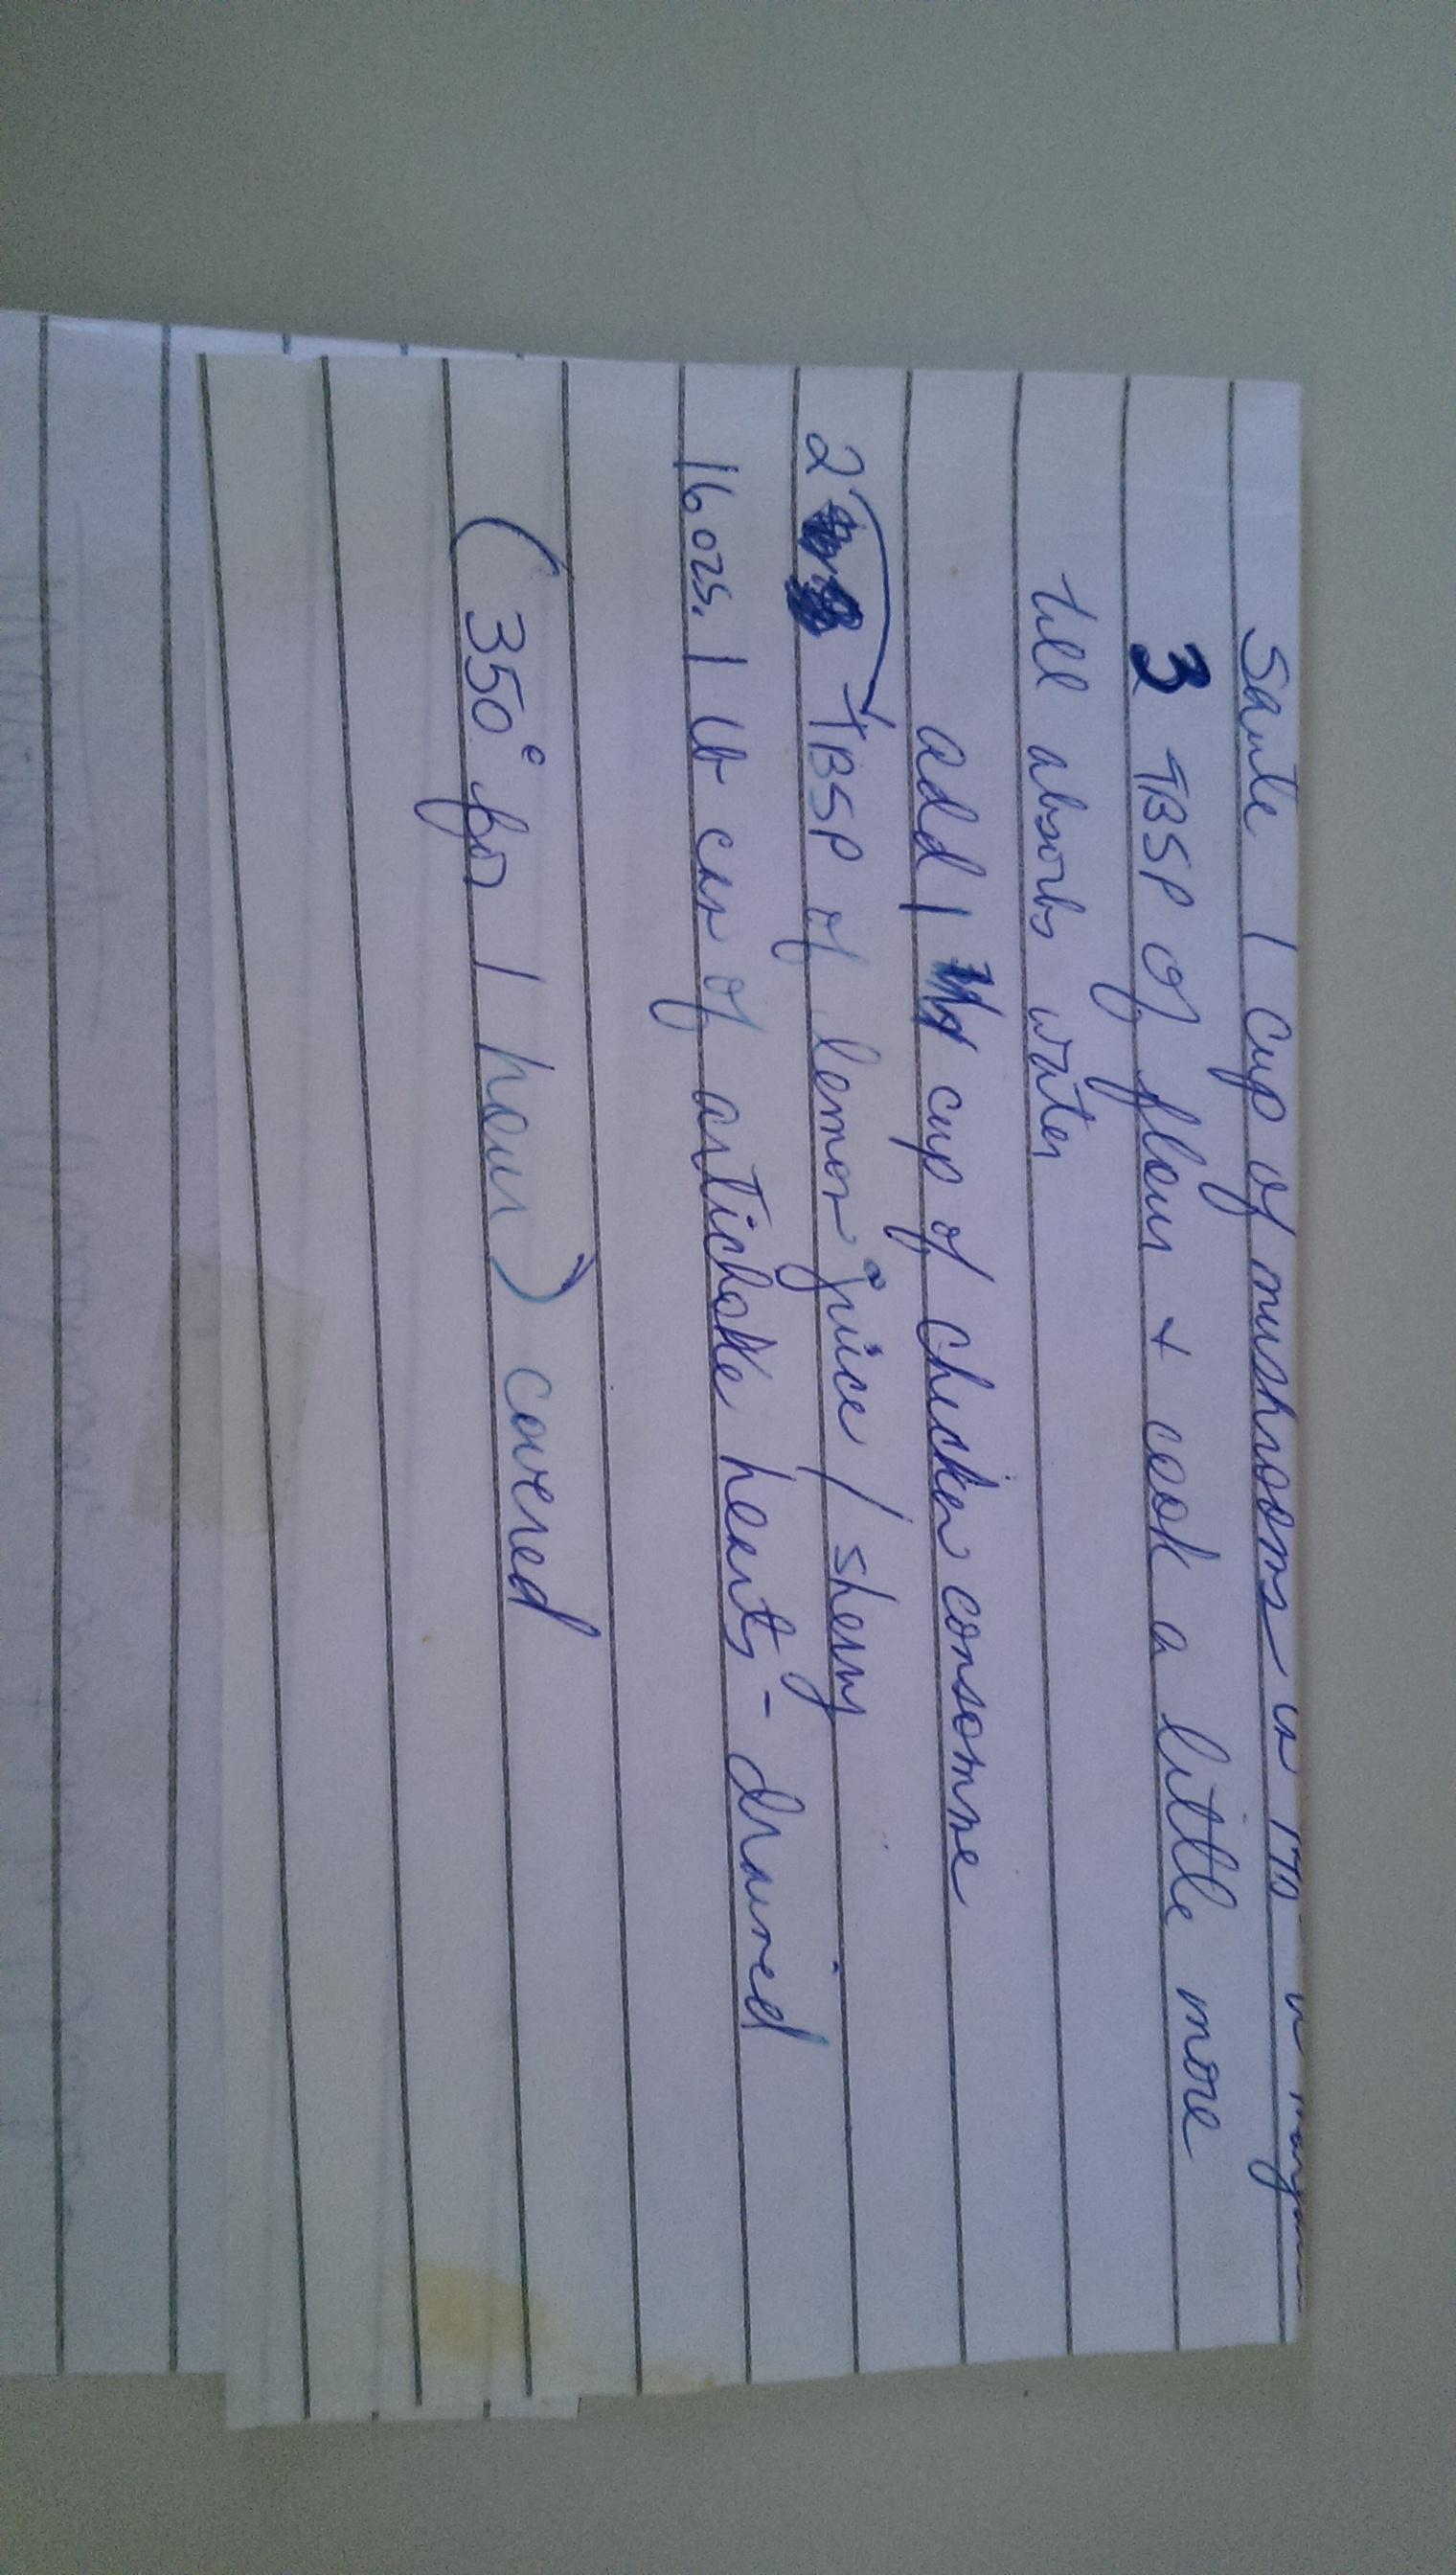 Saute 1 cup of mushrooms in
3 TBSP of flour + cook a little more
till absorbs water
add 1 cup of chicken consomme
2 TBSP of lemon juice / sherry
16 ozs. 1 lb can of artichoke hearts - drained
(350° for 1 hour) covered